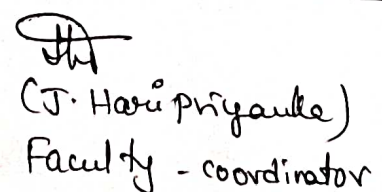 (J. Hari Priyanka)
Faculty - coordinator